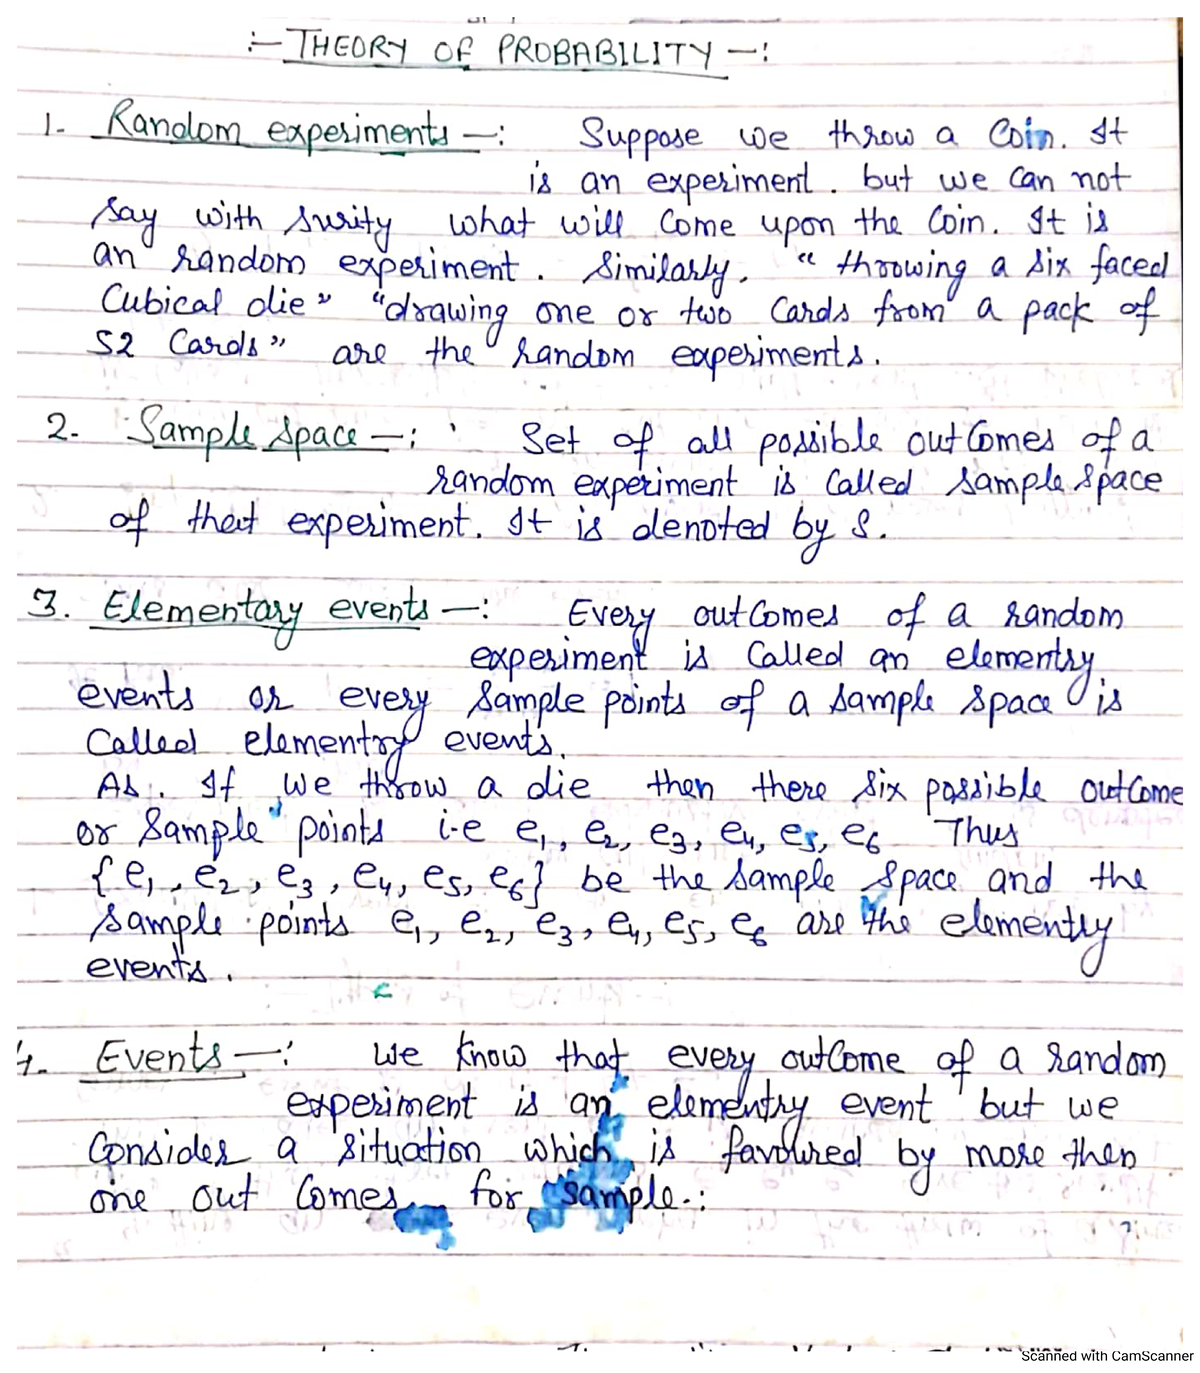 :- THEORY OF PROBABILITY -:
1. Random experiments -: Suppose we throw a Coin. It
is an experiment. but we can not
say with surity what will come upon the Coin. It is
an random experiment. Similarly, "throwing a six faced
Cubical die" "drawing one or two Cards from a pack of
52 Cards" are the random experiments.
2. Sample Space -: Set of all possible out Comes of a
random experiment is Called sample space
of that experiment. It is denoted by S.
3. Elementary events -: Every outComes of a random
experiment is Called an elementry
events or every Sample points of a sample space is
Called elementry events.
As. If we throw a die then there six possible outCome
or Sample points i.e e1, e2, e3, e4, e5, e6 Thus
{e1, e2, e3, e4, e5, e6} be the sample Space and the
sample points e1, e2, e3, e4, e5, e6 are the elementry
events.
4. Events -: We Know that every outCome of a random
experiment is an elementry event but we
Consider a situation which is favoured by more then
one out Comes for sample -:
Scanned with CamScanner